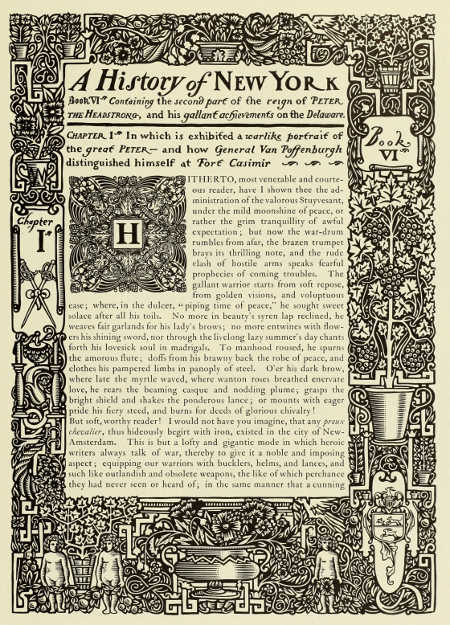 A History of NEW YORK
BOOK VI Containing the second part of the reign of PETER
THE HEADSTRONG, and his gallant achievements on the Delaware.
CHAPTER I In which is exhibited a warlike portrait of
the great PETER — and how General Van Poffenburgh
distinguished himself at Fort Casimir
Book
VI
Chapter
I
H
ITHERTO, most venerable and courte-
ous reader, have I shown thee the ad-
ministration of the valorous Stuyvesant,
under the mild moonshine of peace, or
rather the grim tranquillity of awful
expectation; but now the war-drum
rumbles from afar, the brazen trumpet
brays its thrilling note, and the rude
clash of hostile arms speaks fearful
prophecies of coming troubles. The
gallant warrior starts from soft repose,
from golden visions, and voluptuous
ease; where, in the dulcet, "piping time of peace," he sought sweet
solace after all his toils. No more in beauty's syren lap reclined, he
weaves fair garlands for his lady's brows; no more entwines with flow-
ers his shining sword, nor through the livelong lazy summer's day chants
forth his lovesick soul in madrigals. To manhood roused, he spurns
the amorous flute; doffs from his brawny back the robe of peace, and
clothes his pampered limbs in panoply of steel. O'er his dark brow,
where late the myrtle waved, where wanton roses breathed enervate
love, he rears the beaming casque and nodding plume; grasps the
bright shield and shakes the ponderous lance; or mounts with eager
pride his fiery steed, and burns for deeds of glorious chivalry!
But soft, worthy reader! I would not have you imagine, that any preux
chevalier, thus hideously begirt with iron, existed in the city of New-
Amsterdam. This is but a lofty and gigantic mode in which heroic
writers always talk of war, thereby to give it a noble and imposing
aspect; equipping our warriors with bucklers, helms, and lances, and
such like outlandish and obsolete weapons, the like of which perchance
they had never seen or heard of; in the same manner that a cunning